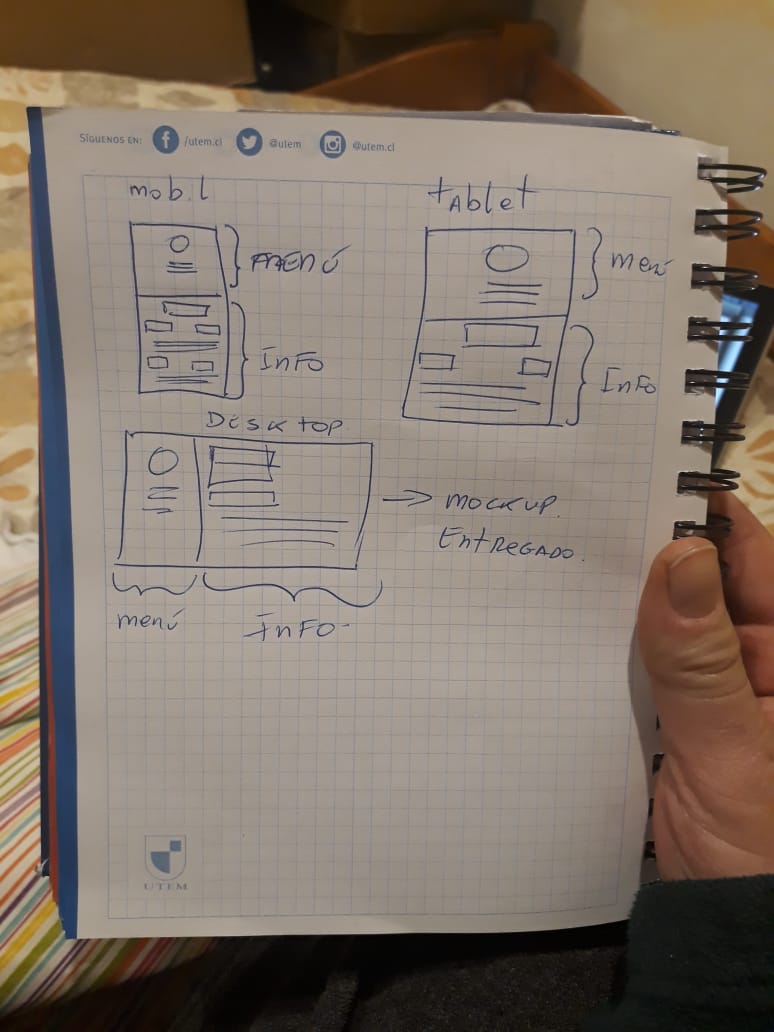 SÍGUENOS EN: /utem.cl @utem @utem.cl
mobil
tablet
menú
menú
Info
Info
Desktop
mockup.
Entregado.
menú
Info
UTEM